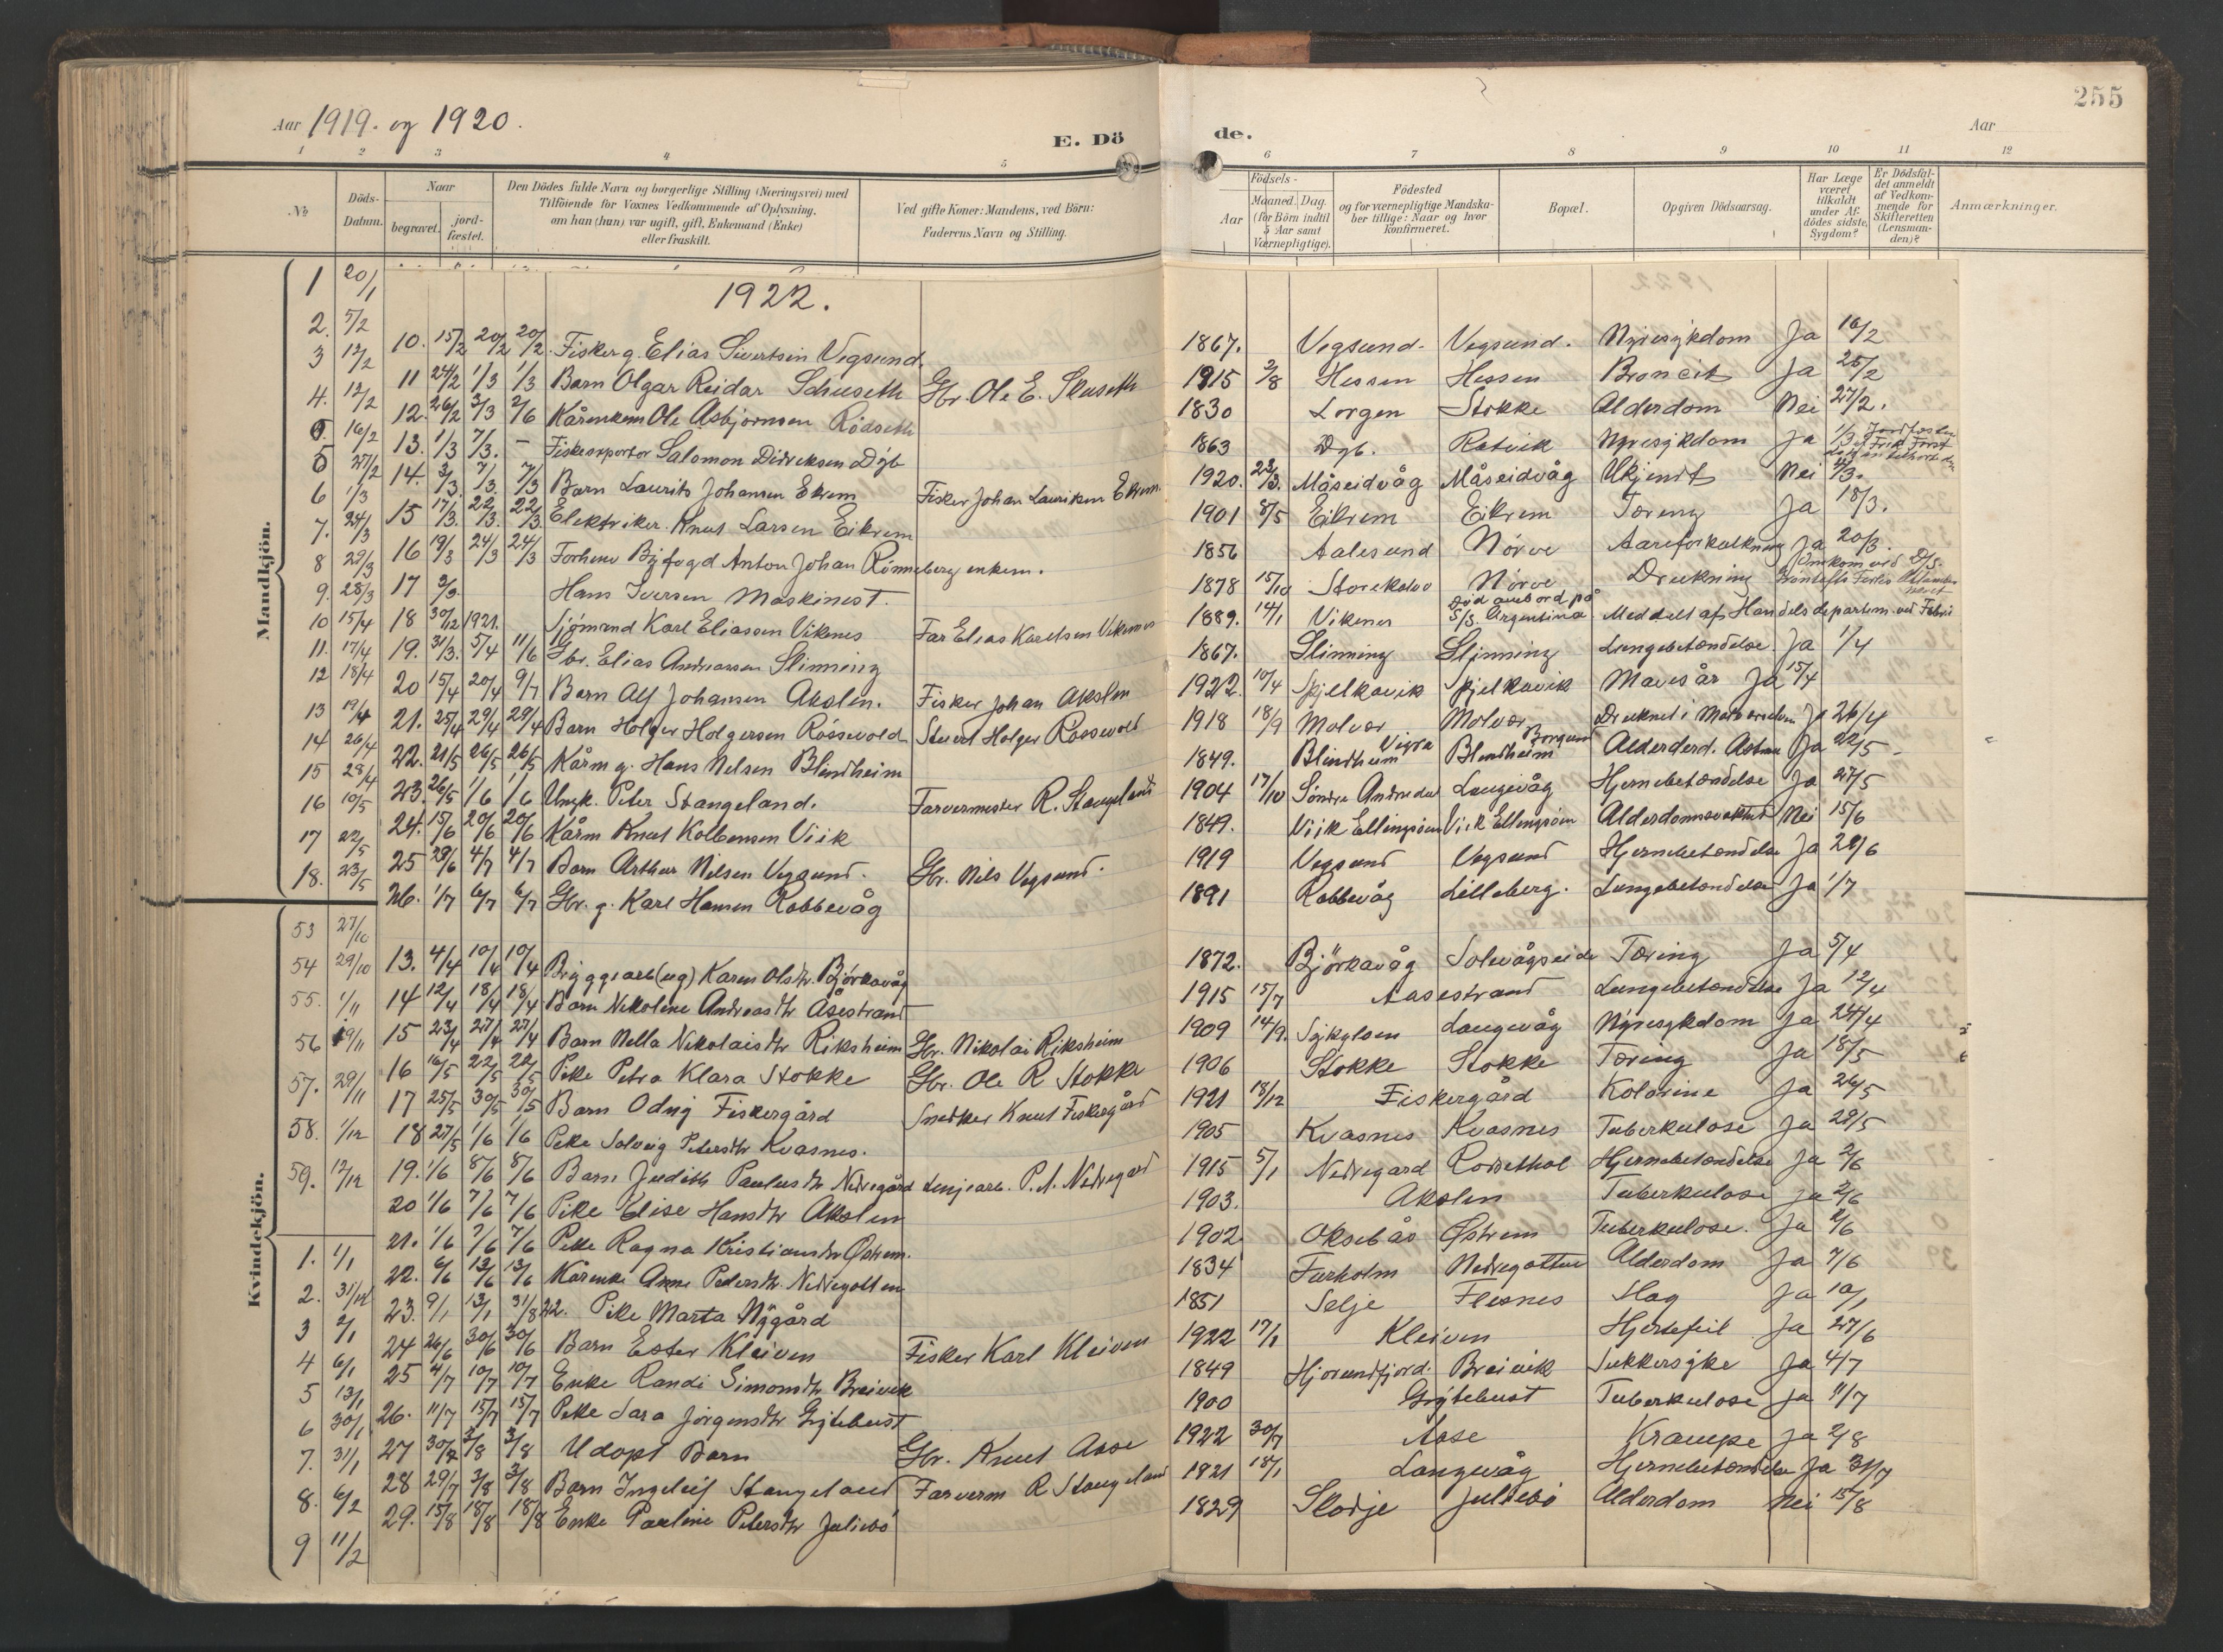 255
Aar 1919. og 1920.
E. Dö
de.
Aar
1 2 3 4 5 6 7 8 9 10 11 12
№
Döds-Datum.
Naar
begravet.
jord-fæstet.
Den Dödes fulde Navn og borgerlige Stilling (Næringsvei) med
Tilföiende for Voxnes Vedkommende af Oplysning.
om han (hun) var ugift, gift, Enkemand (Enke)
eller fraskilt.
Ved gifte Koner: Mandens, ved Börn:
Faderens Navn og Stilling.
Födsels-
Aar
Maaned. Dag.
(for Börn indtil
5 Aar samt
Værnepligtige).
Födested
og for værnepligtige Mandska-
ber tillige: Naar og hvor
konfirmeret.
Bopæl.
Opgiven Dödsaarsag.
Har Læge
været
tilkaldt
under Af-
dödes sidste
Sygdom?
Er Dödsfal-
det anmeldt
af Vedkom-
mende for
Skifteretten
(Lensman-
den)?
Anmærkninger.
Mandkjön.
1 20/1
2. 5/2
3 12/2
4. 12/2
5. 16/2
5 27/2
6 1/3
7. 24/3
8 29/3
9. 28/3
10 15/4
11. 17/4
12 18/4
13 19/4
14 26/4
15 28/4
16 10/5
17 22/5
18. 23/5
1922.
10. 15/2 20/2 20/2 Fisker g. Elias Sivertsen Vegsund. 1867. Vegsund. Vegsund. Nyresykdom Ja 16/2
11 24/2 1/3 1/3 Barn Olgar Reidar Schuseth Gbr. Ole E. Skuseth 1915 2/8 Hessen Hessen Broncit Ja 25/2
12. 26/2 3/3 2/6 Kårenkem Ole Asbjornsen Rödseth 1830 Lorgen Stokke Alderdom Nei 27/2.
13. 1/3 7/3. – Fiskeexportör Salomon Didreksen Dyb 1863 Dyb. Ratvik Nyresykdom Ja 1/3
14. 3/3. 7/3. 7/3 Barn Laurits Johansen Ekrem Fisker Johan Lauriksen Ekrem 1920. 23/3. Måseidvåg Måseidvåg Ukjendt Nei 4/3.
15 17/3. 22/3. 22/3. Elektriker Knut Larsen Eikrem 1901 8/5 Eikrem Eikrem Tæring Ja 18/3.
16 19/3 24/3 24/3 Forhenv Byfogd Anton Johan Rönneberg enkem. 1856 Aalesund Nörve Aareforkalkning Ja 20/3.
17 9/3. Hans Iversen Maskinist. 1878 15/10 Storekalvø Nörve Drukning Omkom ved
18 30/12 1921. Sjömand Karl Eliassen Viknes Far Elias Karelsen Viknes 1889. 14/1 Vikenes Död ombord på S/S. Argentina Meddelt af Handelsdepartem. ved
19. 31/3. 5/4 11/6 Gbr. Elias Andreassen Slinning 1867. Slinning Slinning Lungebetændelse Ja 1/4
20 15/4 20/4 9/7 Barn Alf Johansen Akslen. Fisker Johan Akslen 1922. 10/4 Spjelkavik Spjelkavik Mavesår Ja 15/4
21. 25/4 29/4 29/4 Barn Holger Holgersen Rössevold Stuert Holger Rössevold 1918 18/9 Molvær Molvær Druknet i Ja 26/4
22. 21/5 26/5 26/5 Kårm g. Hans Nelsen Blindheim 1849. Blindheim Vigra Blindheim Borgund Alderd. Astma Ja 22/5
23. 26/5 1/6 1/6 Ungk. Peter Stangeland. Farvermester R. Stangeland 1904 17/10 Söndre Andredal Langevåg Hjernebetændelse Ja 27/5
24. 15/6 20/6 20/6 Kårm Knut Kolbensen Viik 1849. Viik Ellingsöen Viik Ellingsöen Nei 15/6
25 28/6 4/7 4/7 Barn Arthur Nilsen Vegsund. Gbr. Nils Vegsund. 1919 Vegsund Vegsund Hjernebetændelse Ja 28/6
26. 1/7 6/7 6/7 Gbr. g. Karl Hansen Robbevåg 1891 Robbevåg Lilleberg. Lungebetændelse Ja 1/7
Kvindekjön.
53 27/10
54 29/10
55. 1/11
56 19/11
57. 29/11
58. 1/12
59. 12/12
1. 1/1
2. 31/12
3 2/1
4 6/1
5 13/1
6 30/1
7. 31/1
8. 6/2
9 11/2
13. 4/4 10/4 10/4 Bryggearb(ug) Karen Olsdtr. Björkavåg 1872. Björkavåg Solevågseide Tæring Ja 5/4
14 12/4 18/4 18/4 Barn Nikoline Andreasdtr Åsestrand 1915 15/7 Aasestrand Lungebetændelse Ja 12/4
15 23/4 27/4 27/4 Barn Nella Nikolaisdtr Riksheim Gbr. Nikolai Riksheim 1909 14/9. Sykylven Langevåg Nyresykdom Ja 24/4
16 16/5 22/5 22/5 Pike Petra Klara Stokke Gbr. Ole R Stokke 1906 Stokke Stokke Tæring Ja 18/5
17 25/5 30/5 30/5 Barn Odny Fiskergård Snedker Knut Fiskergård 1921 18/12 Fiskergård Kolerine Ja 26/5
18 27/5 1/6 1/6 Pike Solveig Petersdtr Kvasnes. 1905 Kvasnes Kvasnes Tuberkulose Ja 29/5
19. 1/6 8/6 8/6 Barn Judith Paulusdtr Nedregård Linjearb. P. A. Nedregård 1915 5/1 Nedregård Hjernebetændelse Ja 2/6
20 1/6 7/6 7/6 Pike Elise Hansdtr Akslen 1903. Akslen Tuberkulose Ja 2/6
21. 1/6 7/6 7/6 Pike Ragna Kristiansdtr Østrem. 1902 Oksebås Østrem Tuberkulose. Ja 2/6
22. 6/6 13/6 13/6 Kårenke Anne Pedersdtr Nedregotten 1834 Furholm Nedregotten Alderdom Ja 7/6
23. 9/1 13/1 31/8 22. Pike Marta Nygård 1851 Selje Flesnes Slag Ja 10/1
24 26/6 30/6 30/6 Barn Ester Kleiven Fisker Karl Kleiven 1922 17/1 Kleiven Hjertefeil Ja 27/6
25 4/7 10/7 10/7 Enke Randi Simonsdtr Breivik 1849 Hjorundfjord. Breivik Sukkersyke Ja 4/7
26. 11/7 15/7 15/7 Pike Sara Jörgensdtr Gjytebust 1900 Gjytebust Tuberkulose Ja 11/7
27 30/7 3/8 3/8 Udöpt Barn Gbr. Knut Aase 1922 30/7 Aase Krampe Ja 2/8
28 29/7 3/8 3/8 Barn Ingeleif Stangeland Farverm R Stangeland 1921 18/1 Langevåg Hjernebetændelse Ja 31/7
29. 15/8 18/8 18/8 Enke Pauline Petersdtr Juliebö 1829 Skodje Juliebö Alderdom Nei 15/8